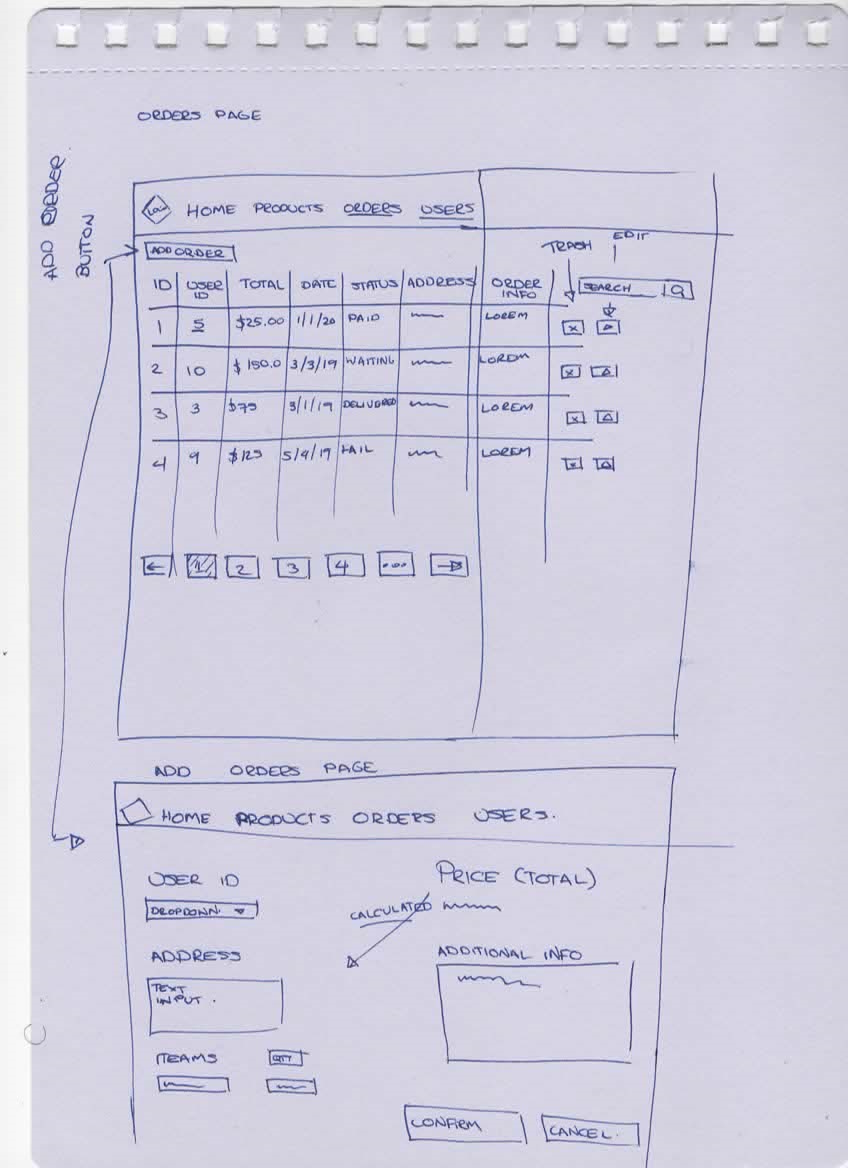 ORDERS PAGE
ADD ORDER
BUTTON
LOGO HOME PRODUCTS ORDERS USERS
ADD ORDER
TRASH EDIT
SEARCH
ID USER ID TOTAL DATE STATUS ADDRESS ORDER INFO
1 5 $25.00 1/1/20 PAID LOREM
2 10 $150.0 3/3/19 WAITING LOREM
3 3 $75 3/1/19 DELIVERED LOREM
4 9 $125 5/9/19 FAIL LOREM
1 2 3 4 ...
ADD ORDERS PAGE
HOME PRODUCTS ORDERS USERS.
USER ID PRICE (TOTAL)
DROPDOWN CALCULATED
ADDRESS ADDITIONAL INFO
TEXT
INPUT.
ITEAMS QTY
CONFIRM CANCEL.